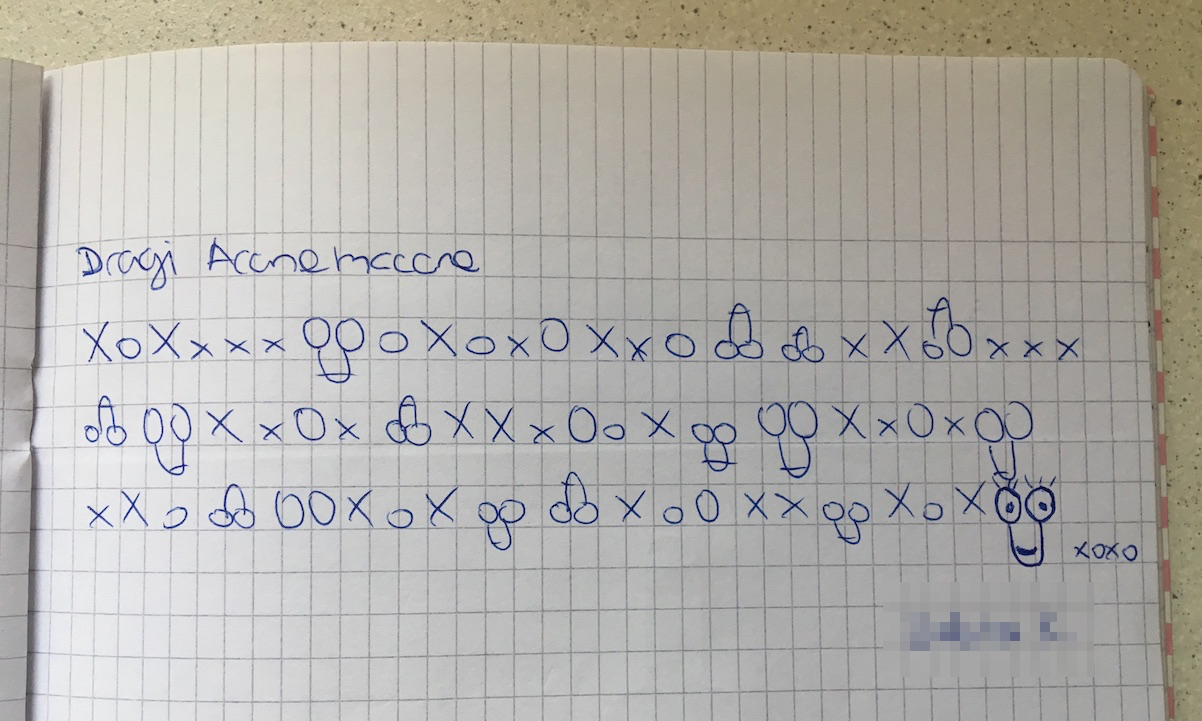 Dragi Accnemcccne
X o X x x x o X o x O X x o x X x x x
X x O x X X x O o X X x O x
x X o O O X o X X o O x x X o X
xoxo